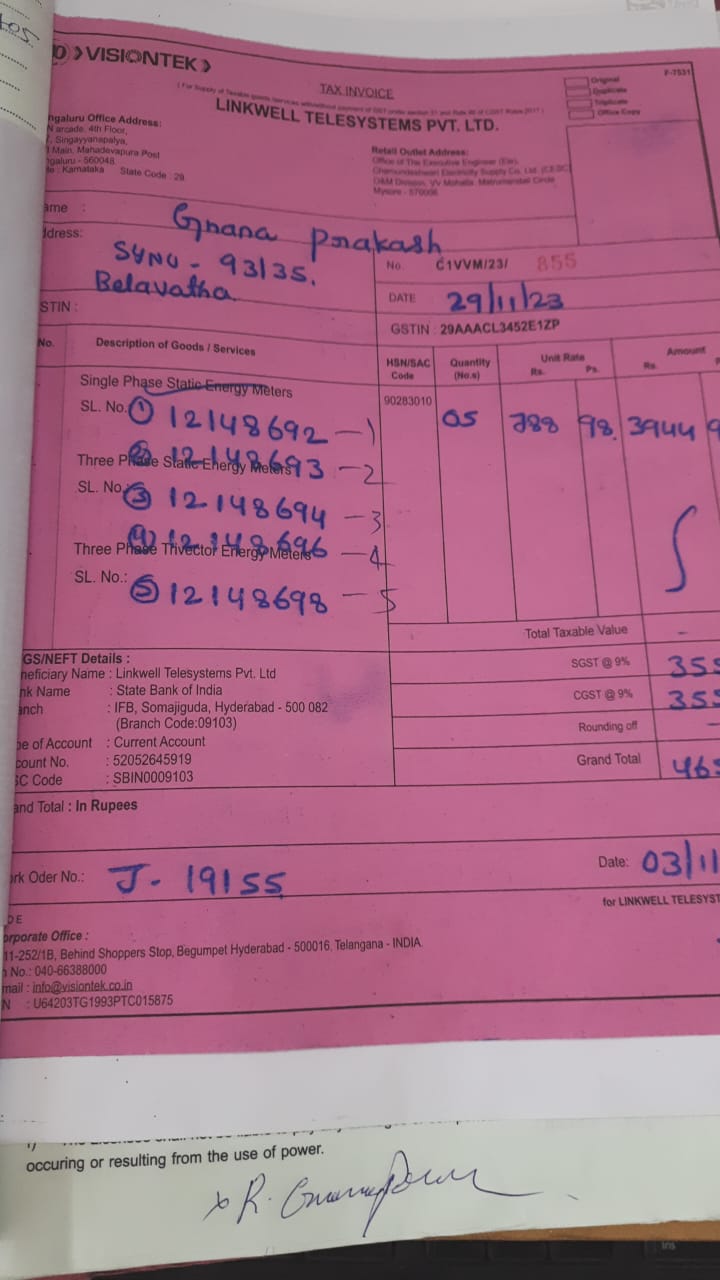 VISIONTEK
TAX INVOICE
LINKWELL TELESYSTEMS PVT. LTD.
F-7531
Original
Duplicate
Triplicate
Office Copy
ngaluru Office Address:
N arcade, 4th Floor,
, Singayyanapalya,
Main, Mahadevapura Post
galuru - 560048
: Karnataka State Code : 29
Retail Outlet Address:
Office of The Executive Engineer (Ele),
Chamundeshwari Electricity Supply Co. Ltd. (CESC)
O&M Division, VV Mohalla, Matrumandali Circle
Mysore - 570006
ame : Gnana Prakash
ddress: SYNO - 93/35.
Belavatha
No. C1VVM/23/ 855
DATE 29/11/23
STIN :
GSTIN : 29AAACL3452E1ZP
No. Description of Goods / Services HSN/SAC Code Quantity (No.s) Unit Rate Rs. Ps. Amount Rs.
Single Phase Static Energy Meters 90283010
SL. No. ① 12148692 - 1 05 788 98. 3944 9
② 12148693 - 2
Three Phase Static Energy Meters
SL. No. ③ 12148694 - 3
④ 12148696 - 4
Three Phase Trivector Energy Meters
SL. No.: ⑤ 12148698 - 5
Total Taxable Value -
SGST @ 9% 355
CGST @ 9% 355
Rounding off -
Grand Total 465
GS/NEFT Details :
neficiary Name : Linkwell Telesystems Pvt. Ltd
nk Name : State Bank of India
anch : IFB, Somajiguda, Hyderabad - 500 082
(Branch Code:09103)
pe of Account : Current Account
count No. : 52052645919
SC Code : SBIN0009103
and Total : In Rupees
ork Oder No.: J - 19155
Date: 03/11
for LINKWELL TELESYST
DE
orporate Office :
11-252/1B, Behind Shoppers Stop, Begumpet Hyderabad - 500016, Telangana - INDIA.
No.: 040-66388000
mail : info@visiontek.co.in
N : U64203TG1993PTC015875
occuring or resulting from the use of power.